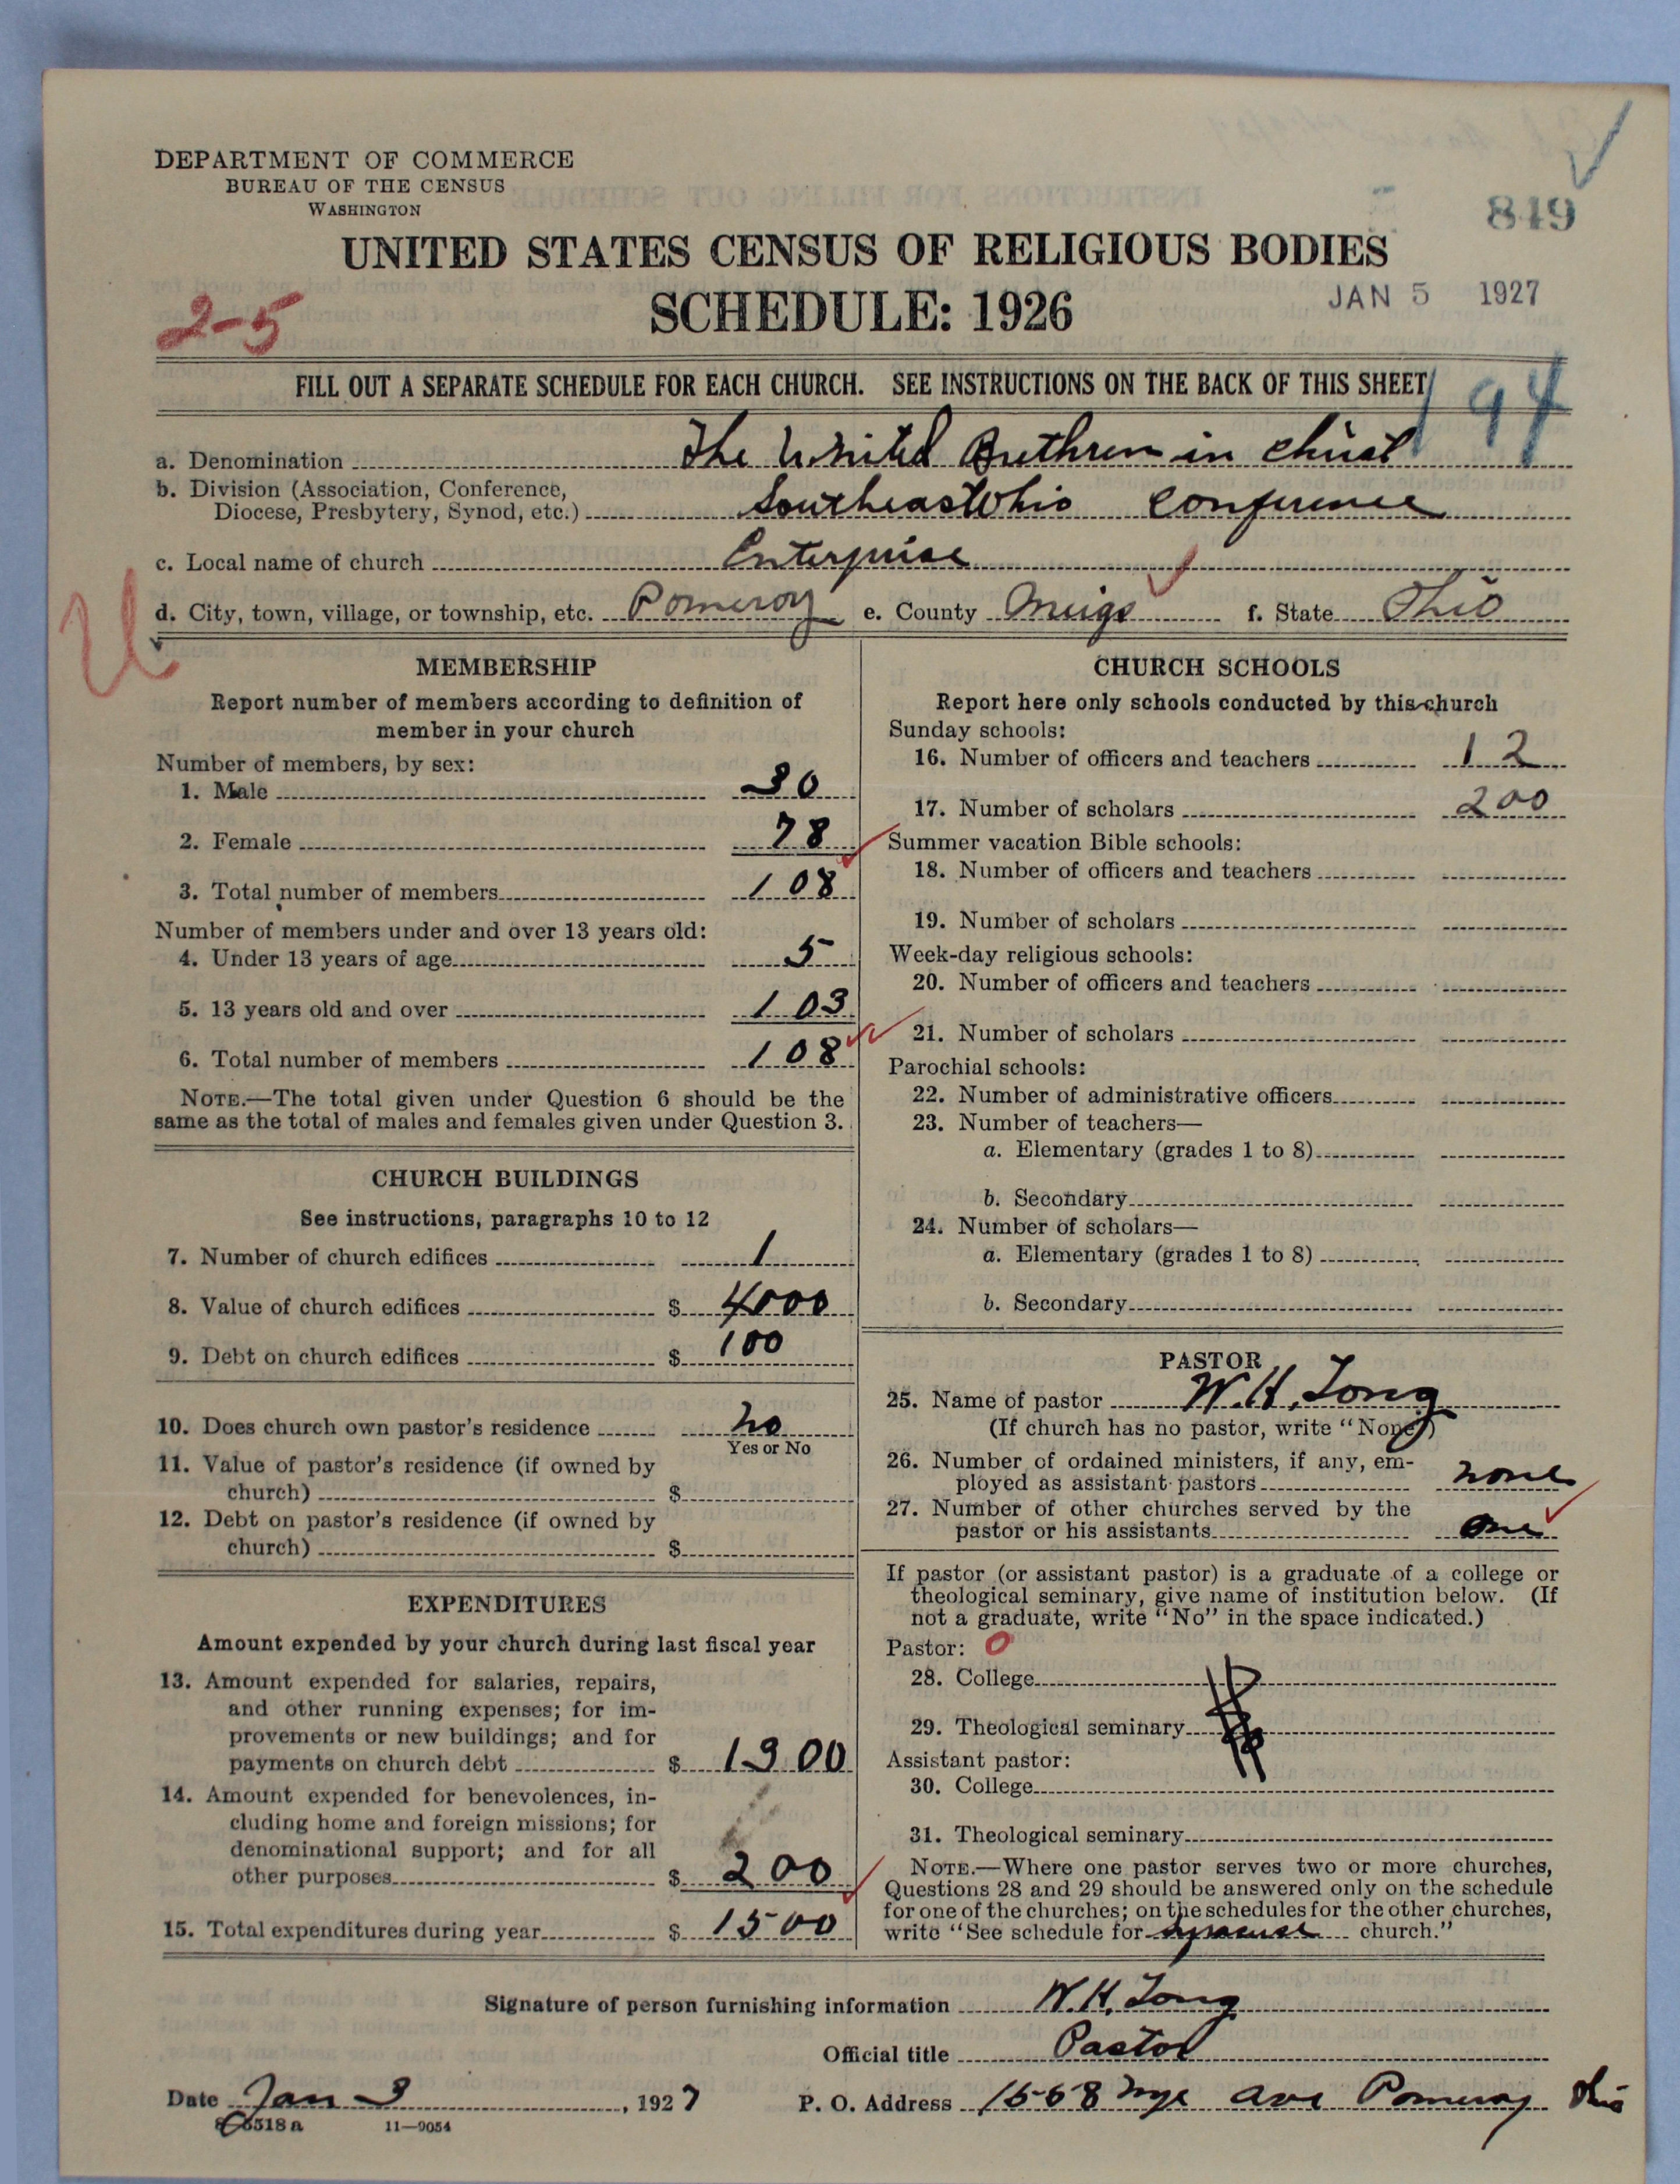 DEPARTMENT OF COMMERCE
BUREAU OF THE CENSUS
WASHINGTON
849
UNITED STATES CENSUS OF RELIGIOUS BODIES
SCHEDULE: 1926
JAN 5 1927
2-5
FILL OUT A SEPARATE SCHEDULE FOR EACH CHURCH. SEE INSTRUCTIONS ON THE BACK OF THIS SHEET
194
a. Denomination The United Brethren in Christ
b. Division (Association, Conference,
Diocese, Presbytery, Synod, etc.) Southeast Ohio Conference
c. Local name of church Enterprise
d. City, town, village, or township, etc. Pomeroy e. County Meigs f. State Ohio
MEMBERSHIP
Report number of members according to definition of
member in your church
Number of members, by sex:
1. Male 30
2. Female 78
3. Total number of members 108
Number of members under and over 13 years old:
4. Under 13 years of age 5
5. 13 years old and over 103
6. Total number of members 108
NOTE.—The total given under Question 6 should be the
same as the total of males and females given under Question 3.
CHURCH BUILDINGS
See instructions, paragraphs 10 to 12
7. Number of church edifices 1
8. Value of church edifices $ 4000
9. Debt on church edifices $ 100
10. Does church own pastor's residence no
Yes or No
11. Value of pastor's residence (if owned by
church) $
12. Debt on pastor's residence (if owned by
church) $
EXPENDITURES
Amount expended by your church during last fiscal year
13. Amount expended for salaries, repairs,
and other running expenses; for im-
provements or new buildings; and for
payments on church debt $ 1300
14. Amount expended for benevolences, in-
cluding home and foreign missions; for
denominational support; and for all
other purposes $ 200
15. Total expenditures during year $ 1500
CHURCH SCHOOLS
Report here only schools conducted by this church
Sunday schools:
16. Number of officers and teachers 12
17. Number of scholars 200
Summer vacation Bible schools:
18. Number of officers and teachers
19. Number of scholars
Week-day religious schools:
20. Number of officers and teachers
21. Number of scholars
Parochial schools:
22. Number of administrative officers
23. Number of teachers—
a. Elementary (grades 1 to 8)
b. Secondary
24. Number of scholars—
a. Elementary (grades 1 to 8)
b. Secondary
PASTOR
25. Name of pastor W. H. Long
(If church has no pastor, write "None")
26. Number of ordained ministers, if any, em-
ployed as assistant pastors none
27. Number of other churches served by the
pastor or his assistants one
If pastor (or assistant pastor) is a graduate of a college or
theological seminary, give name of institution below. (If
not a graduate, write "No" in the space indicated.)
Pastor: 0
28. College
29. Theological seminary
Assistant pastor:
30. College
31. Theological seminary
NOTE.—Where one pastor serves two or more churches,
Questions 28 and 29 should be answered only on the schedule
for one of the churches; on the schedules for the other churches,
write "See schedule for Syracuse church."
Signature of person furnishing information W. H. Long
Official title Pastor
Date Jan 3, 1927 P. O. Address 1558 Nye Ave Pomeroy Ohio
8-5518a 11-9054